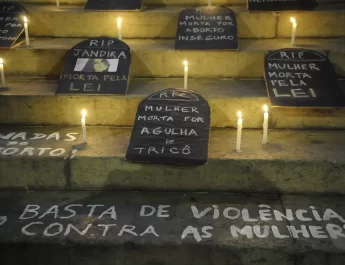 RIP
JANDIRA
MORTA PELA
LEI
MULHER
MORTA POR
ABORTO
INSEGURO
RIP
MULHER
MORTA PELA
LEI
RIP
MULHER
MORTA POR
AGULHA
DE
TRICÔ
BASTA DE VIOLÊNCIA
CONTRA AS MULHER